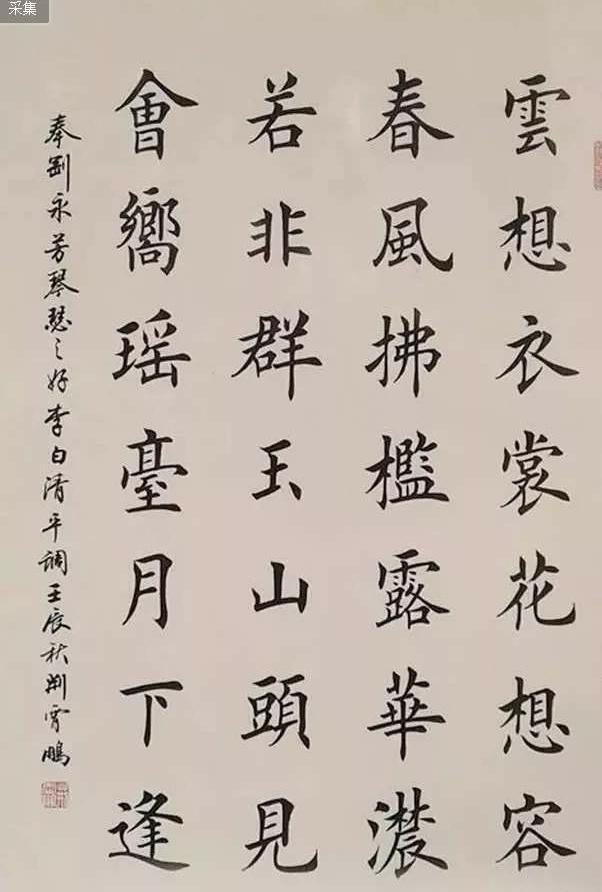 雲想衣裳花想容
春風拂檻露華濃
若非群玉山頭見
會嚮瑤臺月下逢
奉劉永芳琴瑟之好李白清平調壬辰秋荆霄鵬
采集